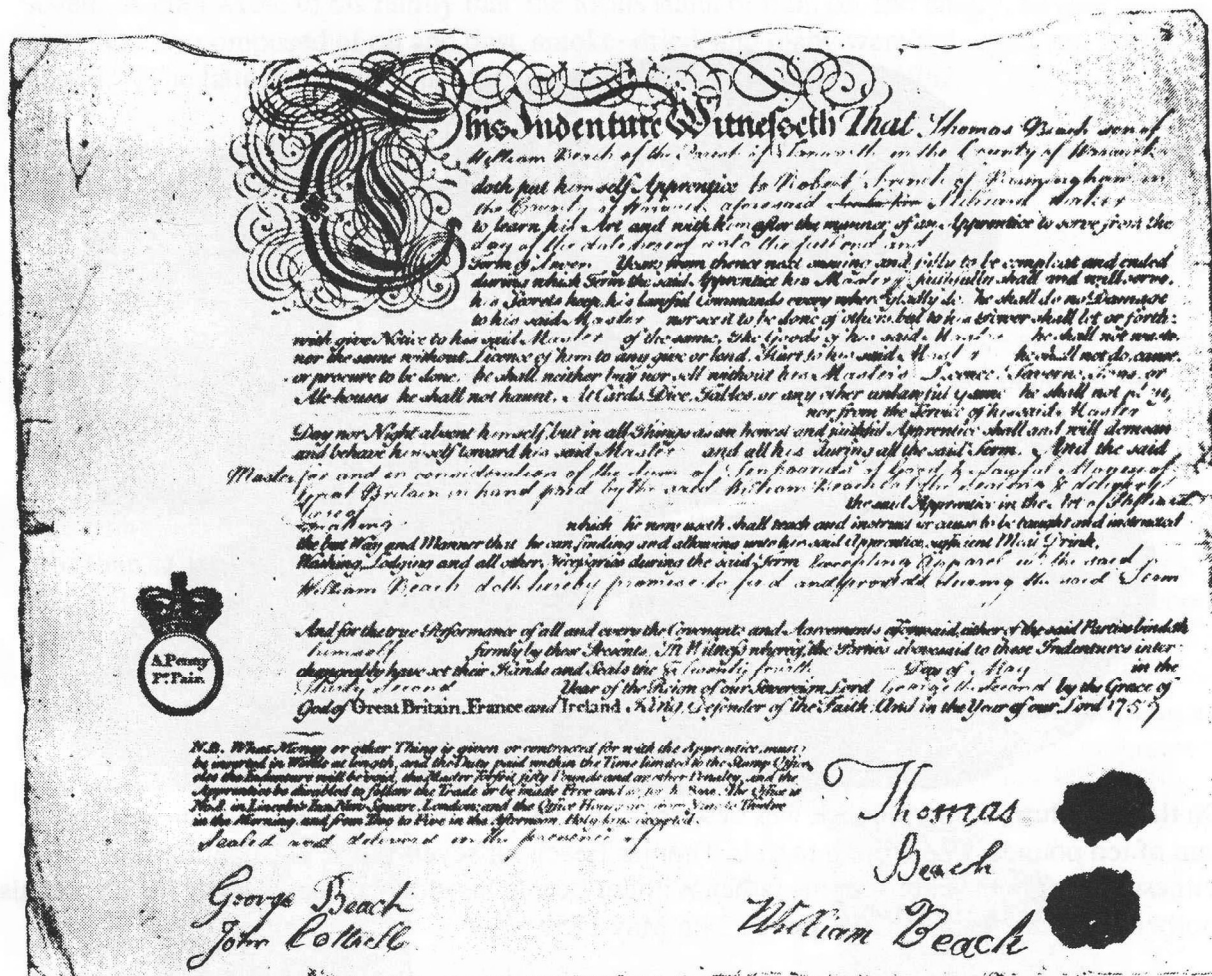 This Indenture Witnesseth That Thomas Beach son of
William Beach of the Parish of in the County of Warwick
doth put himself Apprentice to Robert French of Birmingham in
the County of Warwick aforesaid Maker
to learn his Art and with him after the manner of an Apprentice to serve from the
day of the date hereof unto the full end and
Term of Seven Years from thence next ensuing and fully to be compleat and ended
during which Term the said Apprentice his Master faithfully shall and will serve,
his Secrets keep, his lawful Commands every where gladly do. he shall do no Damage
to his said Master nor see it to be done of others, but to his Power shall let or forth:
with give Notice to his said Master of the same. The Goods of his said Master he shall not waste
nor the same without Licence of him to any give or lend. Hurt to his said Master he shall not do, cause,
or procure to be done. he shall neither buy nor sell without his Master's Licence. Taverns, Inns, or
Ale-houses he shall not haunt. At Cards, Dice, Tables, or any other unlawful game he shall not play,
nor from the Service of his said Master
Day nor Night absent himself, but in all Things as an honest and faithful Apprentice shall and will demean
and behave himself toward his said Master and all his during all the said Term. And the said
Master for and in consideration of the sum of Ten Pounds of Good & Lawful Money of
Great Britain in hand paid by the said William Beach at the Sealing & delivery
hereof
the said Apprentice in the Art of
making which he now useth shall teach and instruct or cause to be taught and instructed
the best Way and Manner that he can, finding and allowing unto his said Apprentice sufficient Meat, Drink,
Washing, Lodging and all other Necessaries during the said Term Excepting Apparel the said
William Beach doth hereby promise to find and provide during the said Term
And for the true Performance of all and every the Covenants and Agreements aforesaid, either of the said Parties bindeth
himself firmly by these Presents. In Witness whereof, the Parties abovesaid to these Indentures inter
changeably have set their Hands and Seals the Twenty fourth Day of May in the
Thirty Second Year of the Reign of our Sovereign Lord George the Second by the Grace of
God of Great Britain, France and Ireland King, Defender of the Faith. And in the Year of our Lord
A Penny
Pr. Pair.
N.B. What Money or other Thing is given or contracted for with the Apprentice, must
be inserted in Words at length, and the Duty paid within the Time limited to the Stamp Office,
else the Indenture will be void, the Master forfeit fifty Pounds and another Penalty, and the
Apprentice be disabled to follow the Trade or be made Free The Office is
No. 8, in Lincoln's Inn New-Square, London; and the Office Hours are from Nine to Twelve
in the Morning, and from Two to Five in the Afternoon, Holydays excepted.
Sealed and delivered in the presence of
Thomas
Beach
George Beach
John Cottrell
William Beach